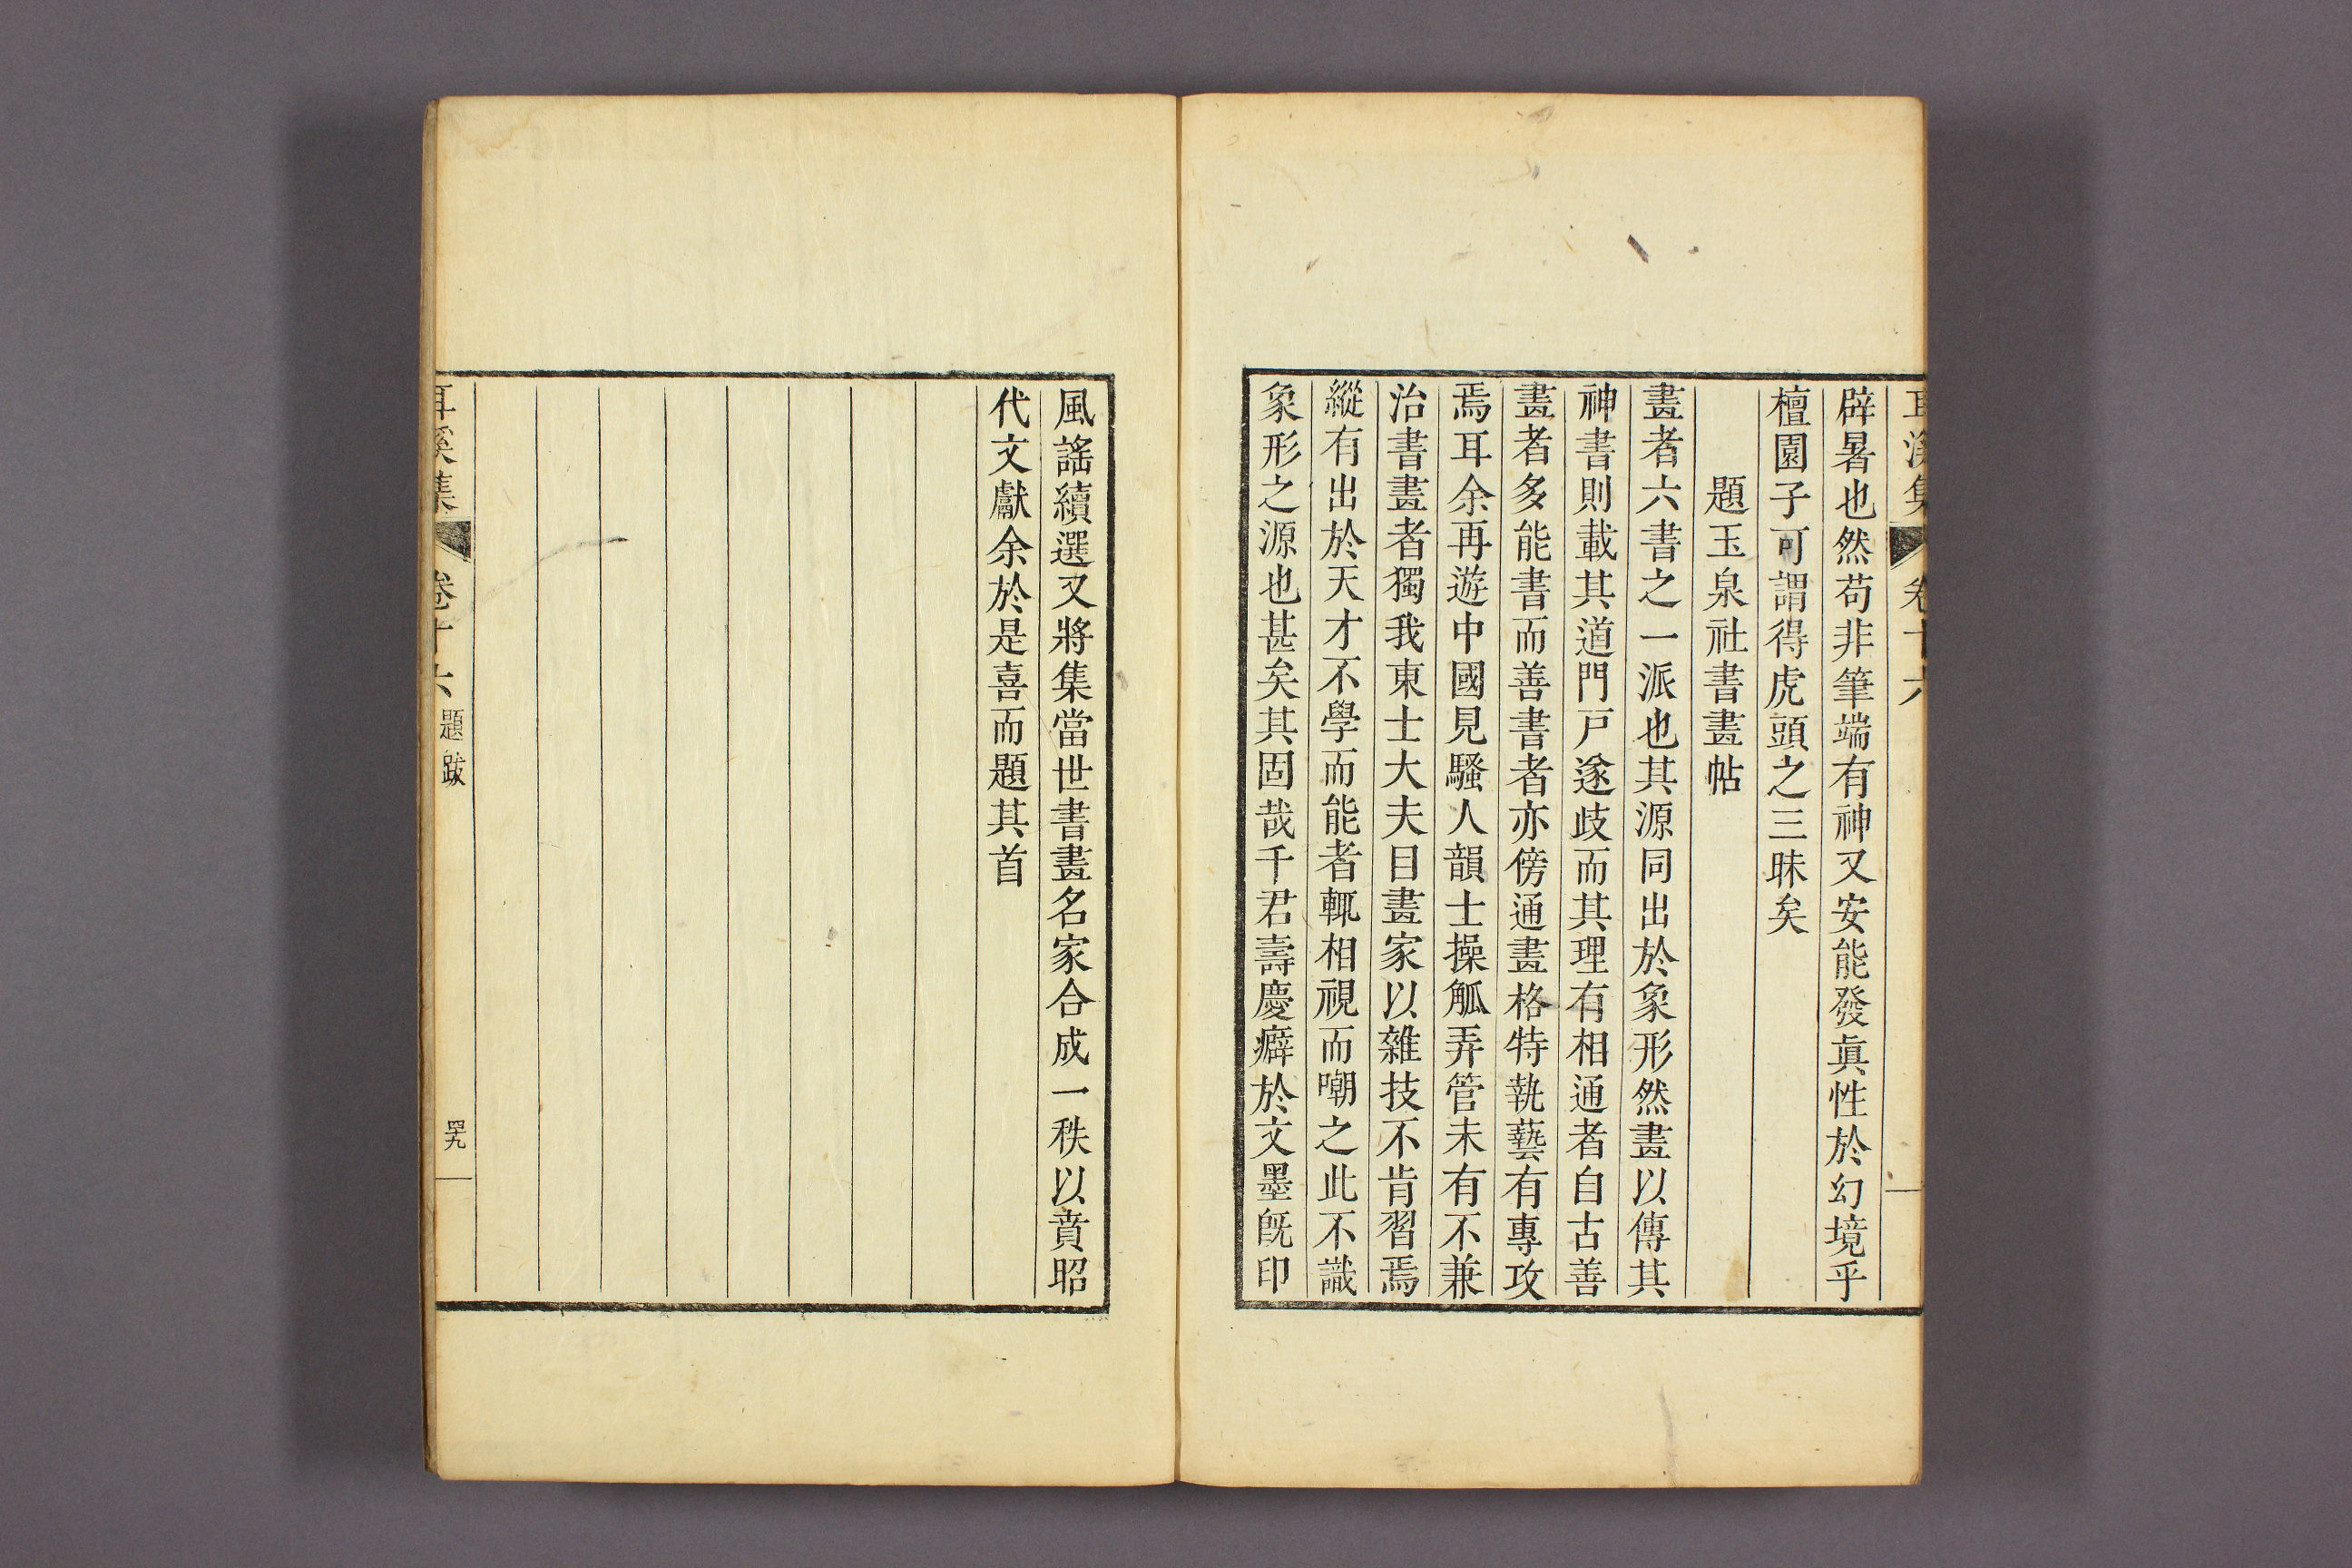 耳溪集 卷十六
辟暑也然苟非筆端有神又安能發眞性於幻境乎
檀園子可謂得虎頭之三昧矣
題玉泉社書畫帖
畫者六書之一派也其源同出於象形然畫以傳其
神書則載其道門戸遂歧而其理有相通者自古善
畫者多能書而善書者亦傍通畫格特執藝有專攻
焉耳余再遊中國見騷人韻士操觚弄管未有不兼
治書畫者獨我東士大夫目畫家以雜技不肯習焉
縱有出於天才不學而能者輒相視而嘲之此不識
象形之源也甚矣其固哉千君壽慶癖於文墨旣印
風謠續選又將集當世書畫名家合成一秩以賁昭
代文獻余於是喜而題其首
耳溪集 卷十六 題跋 四九